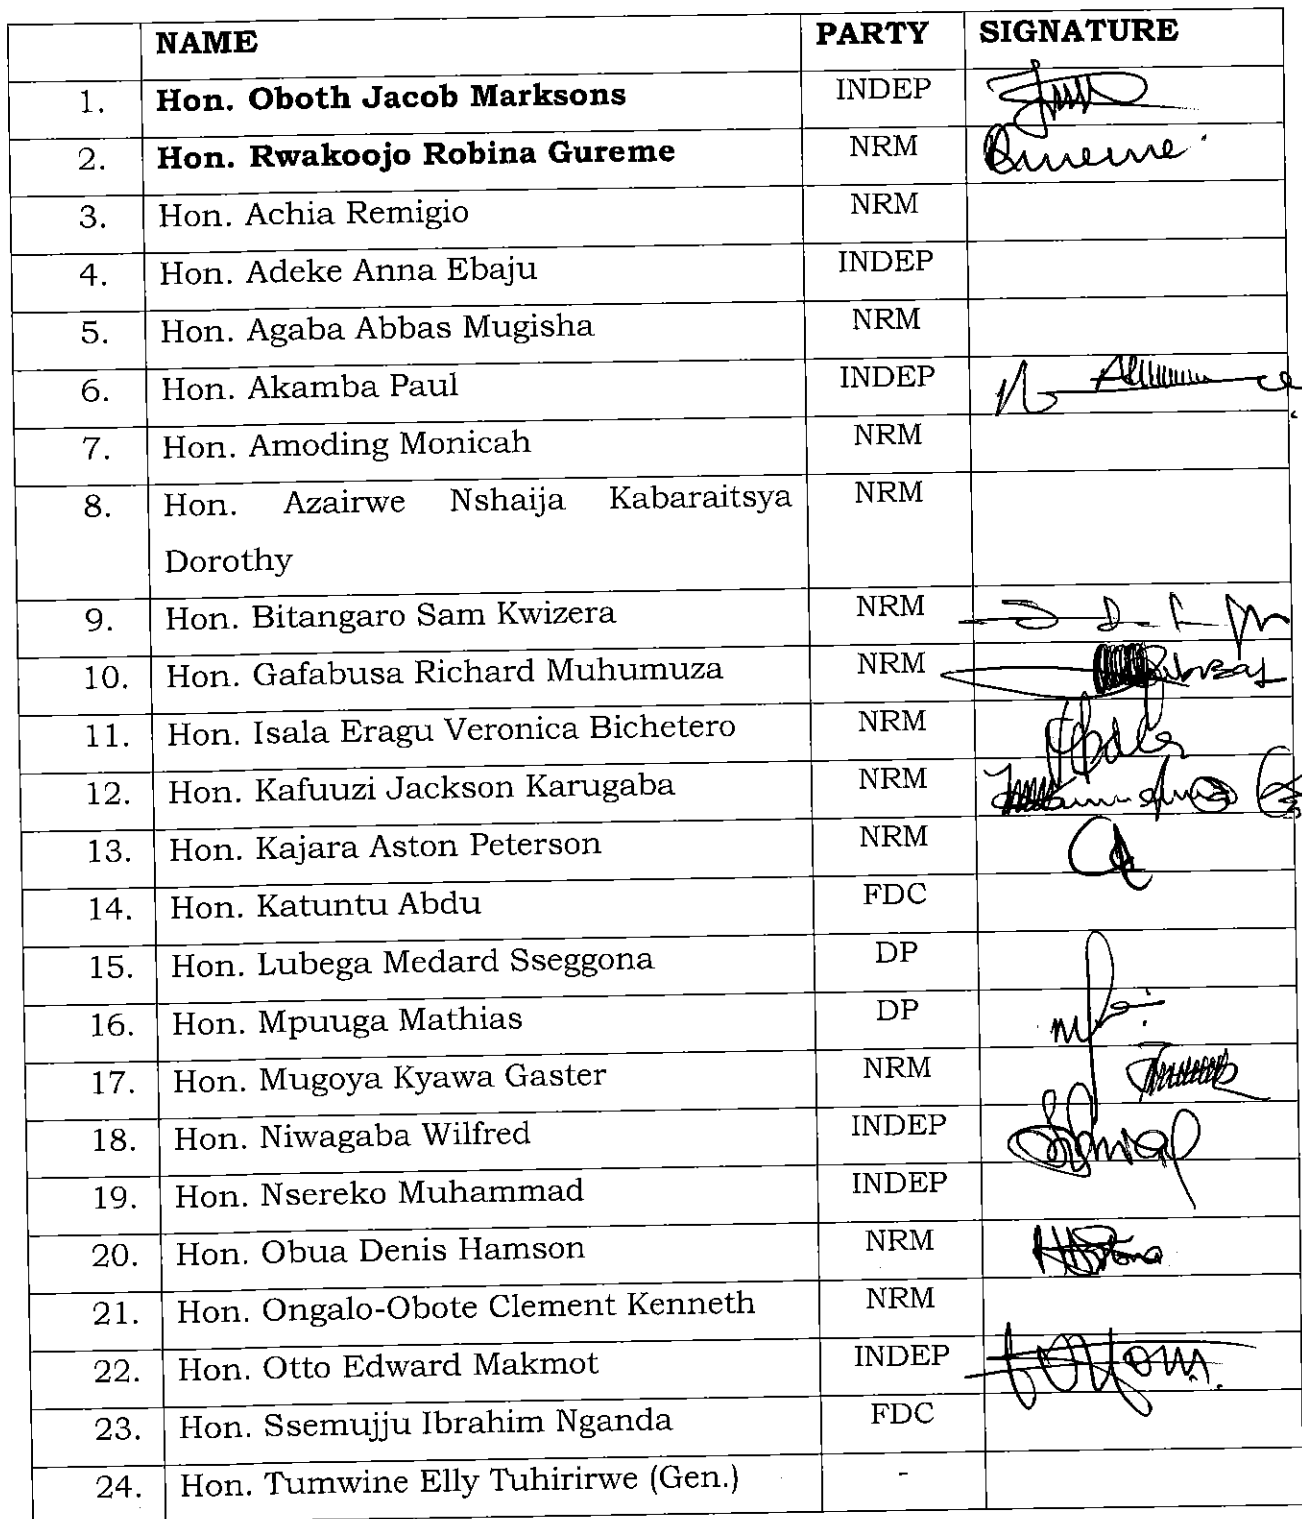 NAME PARTY SIGNATURE
1. Hon. Oboth Jacob Marksons INDEP
2. Hon. Rwakoojo Robina Gureme NRM
3. Hon. Achia Remigio NRM
4. Hon. Adeke Anna Ebaju INDEP
5. Hon. Agaba Abbas Mugisha NRM
6. Hon. Akamba Paul INDEP
7. Hon. Amoding Monicah NRM
8. Hon. Azairwe Nshaija Kabaraitsya NRM
Dorothy
9. Hon. Bitangaro Sam Kwizera NRM
10. Hon. Gafabusa Richard Muhumuza NRM
11. Hon. Isala Eragu Veronica Bichetero NRM
12. Hon. Kafuuzi Jackson Karugaba NRM
13. Hon. Kajara Aston Peterson NRM
14. Hon. Katuntu Abdu FDC
15. Hon. Lubega Medard Sseggona DP
16. Hon. Mpuuga Mathias DP
17. Hon. Mugoya Kyawa Gaster NRM
18. Hon. Niwagaba Wilfred INDEP
19. Hon. Nsereko Muhammad INDEP
20. Hon. Obua Denis Hamson NRM
21. Hon. Ongalo-Obote Clement Kenneth NRM
22. Hon. Otto Edward Makmot INDEP
23. Hon. Ssemujju Ibrahim Nganda FDC
24. Hon. Tumwine Elly Tuhirirwe (Gen.) -